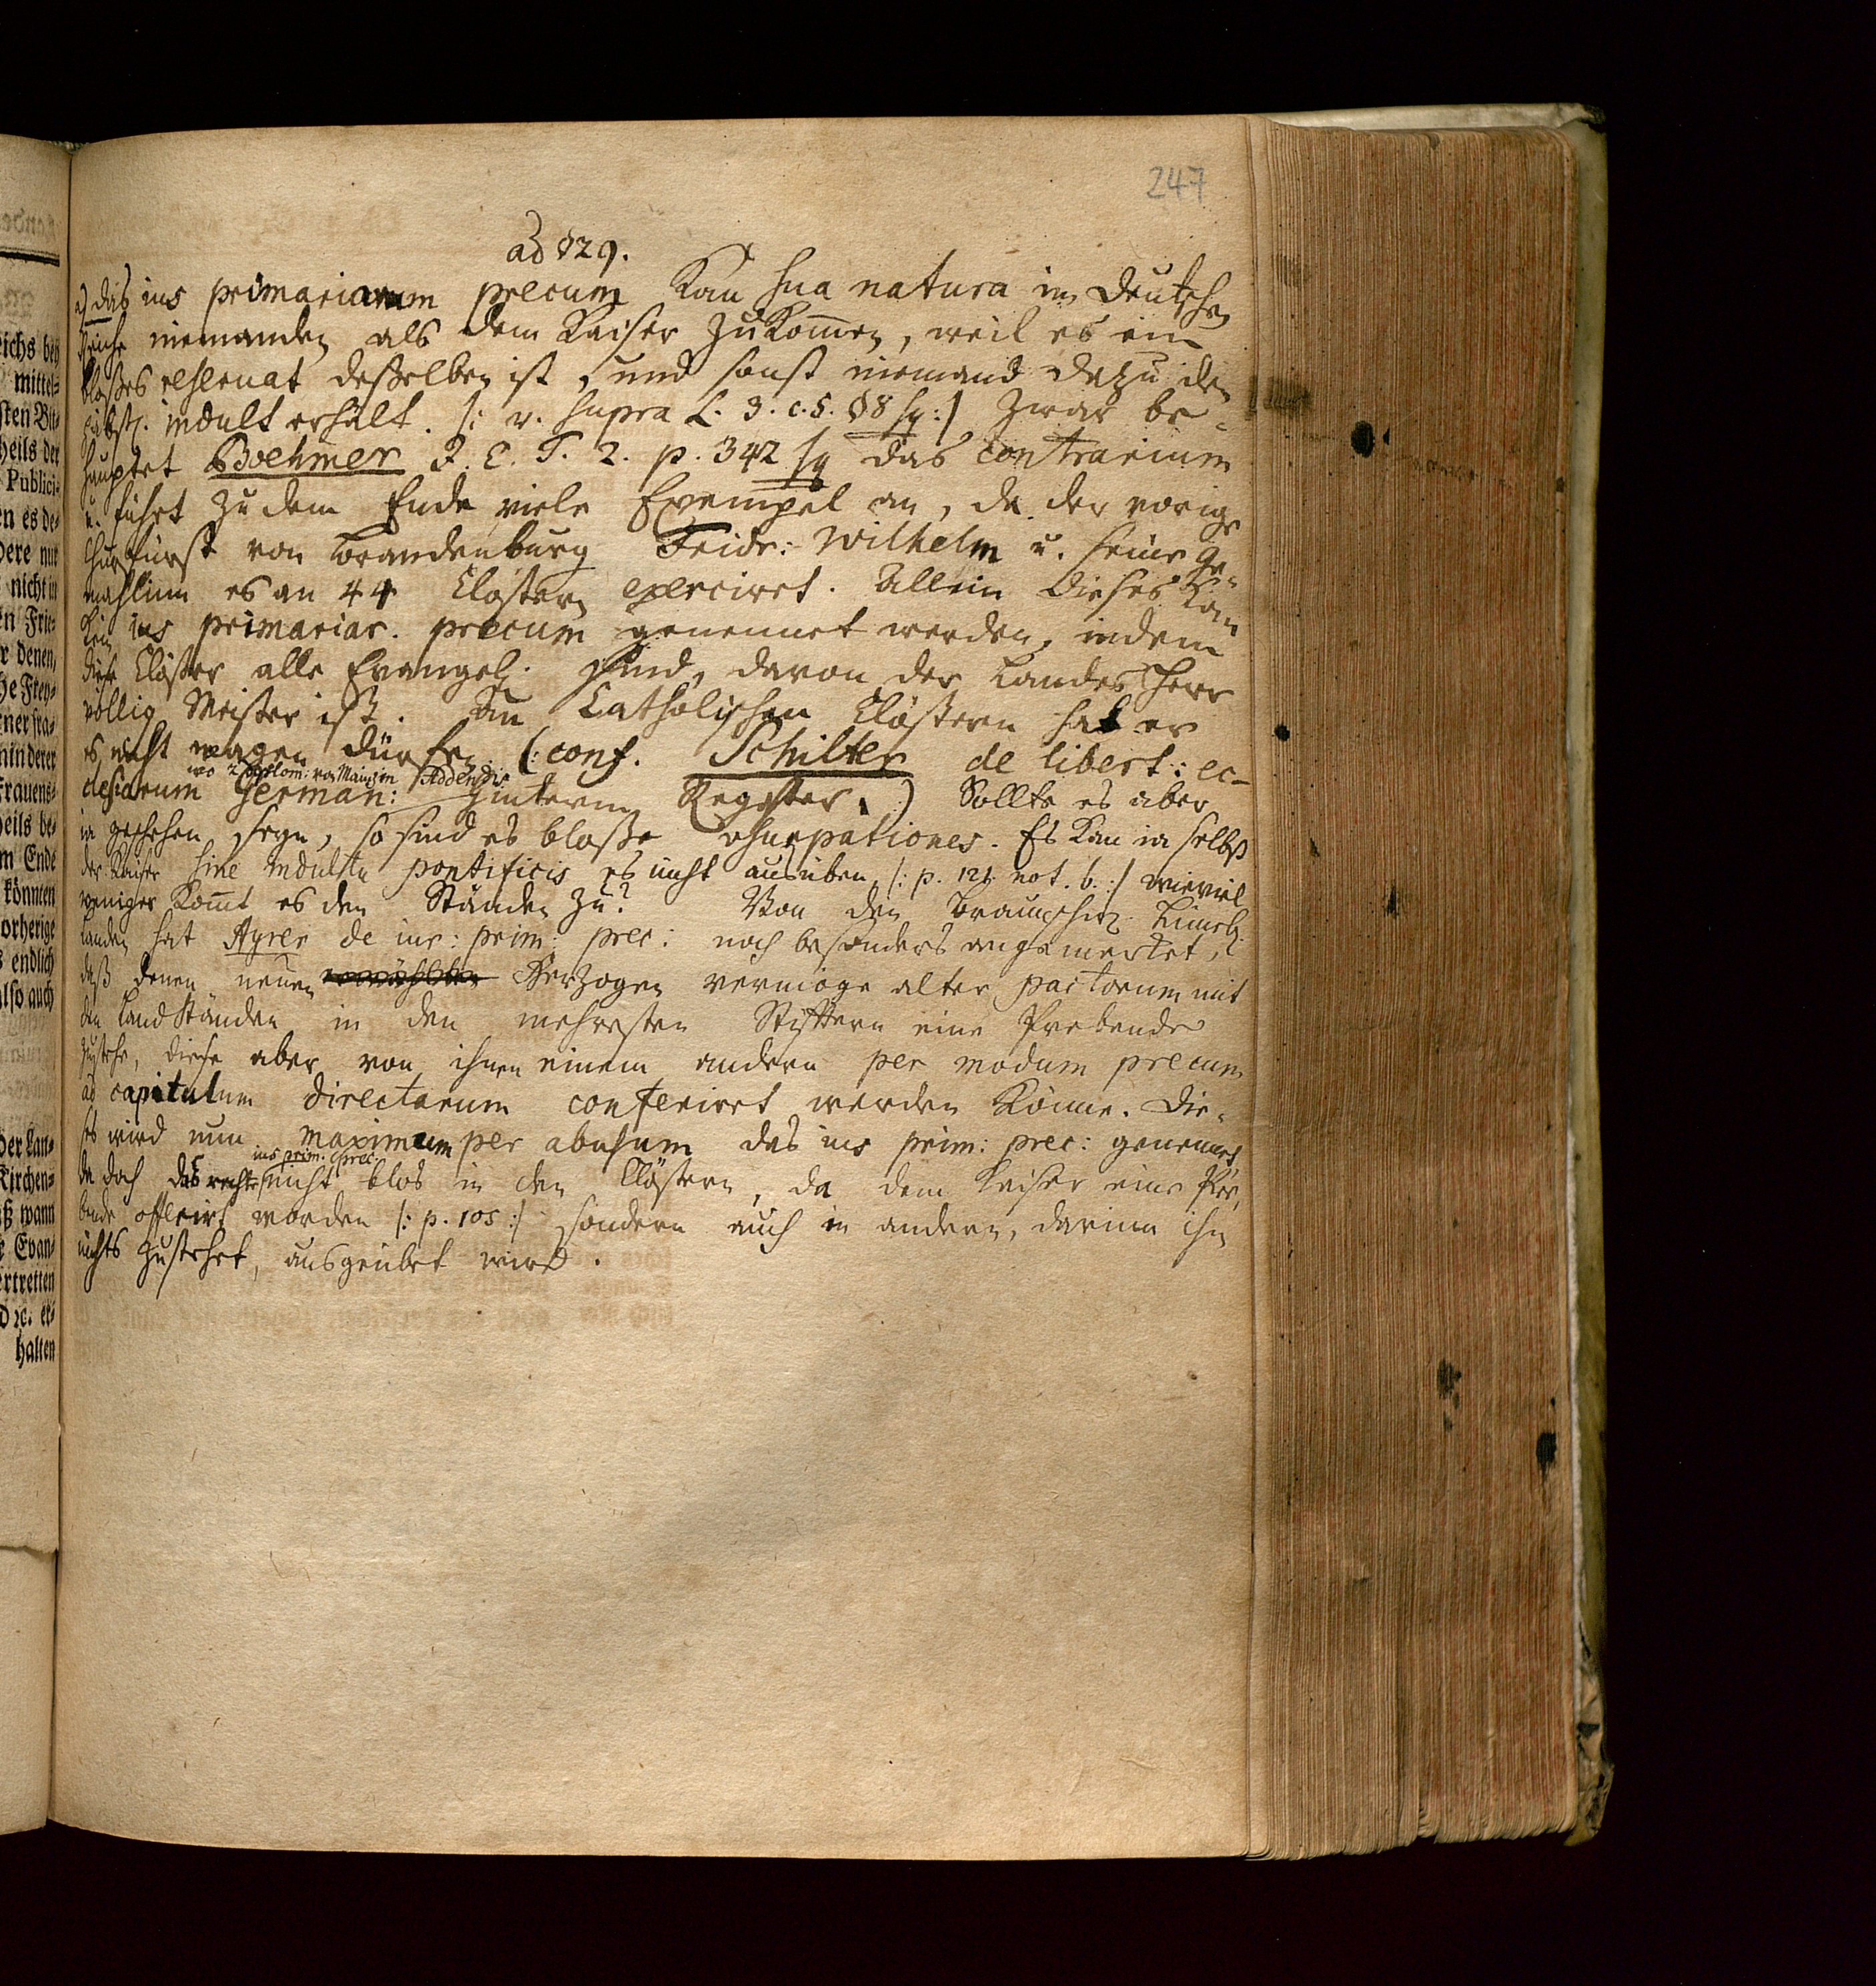 247
ad §29.
a) das ius primariarum precum kan sua natura in Deutschen
Reiche niemanden als dem Kaiser zukom̄en, weil es ein
bloßes reservat desselben ist, und sonst niemand dazu den
päbstl. indult erhält. /: v. supra L. 3. c. 5. §8 sq :/ Zwar be-
hauptet Boehmer J. E. T. 2. p. 342 sq das contrarium
u. führt zu dem Ende viele Exempel an, da der vorige
Churfürst von Brandenburg Fridr: Wilhelm u. seine Ge-
mahlinn es an 44 Clöstern exerciret. Allein dieses kan
kein ius primariar. precum genennet werden, indem
diese Clöster alle Evangel. sind, davon der Landes Herr
völlig Meister ist. An Catholischen Clöstern hat er
es nicht wagen dürfen (: conf. Schilter de libert: ec-
wo 2 diplom: von Mainz in Addendis
clesiarum German: hinterm Register.) Sollte es aber
ia geschehen seyn, so sind es bloße usurpationes. Es kan ia selbst
der Kaiser sine indultu pontificis es nicht ausüben /: p. 121. not. b. :/ wieviel
weniger kom̄t es den Ständen zu? Von den Braunschw. Lüneb.
Landen hat Ayrer de iur: prim: prec: noch besonders angemerket,
daß denen neuen Herzogen vermöge alter pactorum mit
den Landständen in den mehresten Stifftern eine Prebende
zustehe, diese aber von ihnen einem andern per modum precum
ad capitulum directarum conferiret werden könne. Die-
ses wird nun maximum per abusum das ius prim: prec: genennet,
ius prim. prec.
da doch das rechte nicht blos in den Clöstern, da dem Kaiser eine Pre-
bende offerirt worden /: p. 105 :/ sondern auch in andern, darinn ihm
nichts zustehet, ausgeübet wird.
ichs bey
mittel-
sten Bi-
heils der
Publici-
en es de-
dere nur
nicht in
en Frie-
r denen,
he Frey-
Frauens-
heils be-
m Ende
könnten
orherige
s endlich
also auch
der Lan-
Kirchen-
ß wann
Evan-
ertretten
d ꝛc. er-
halten